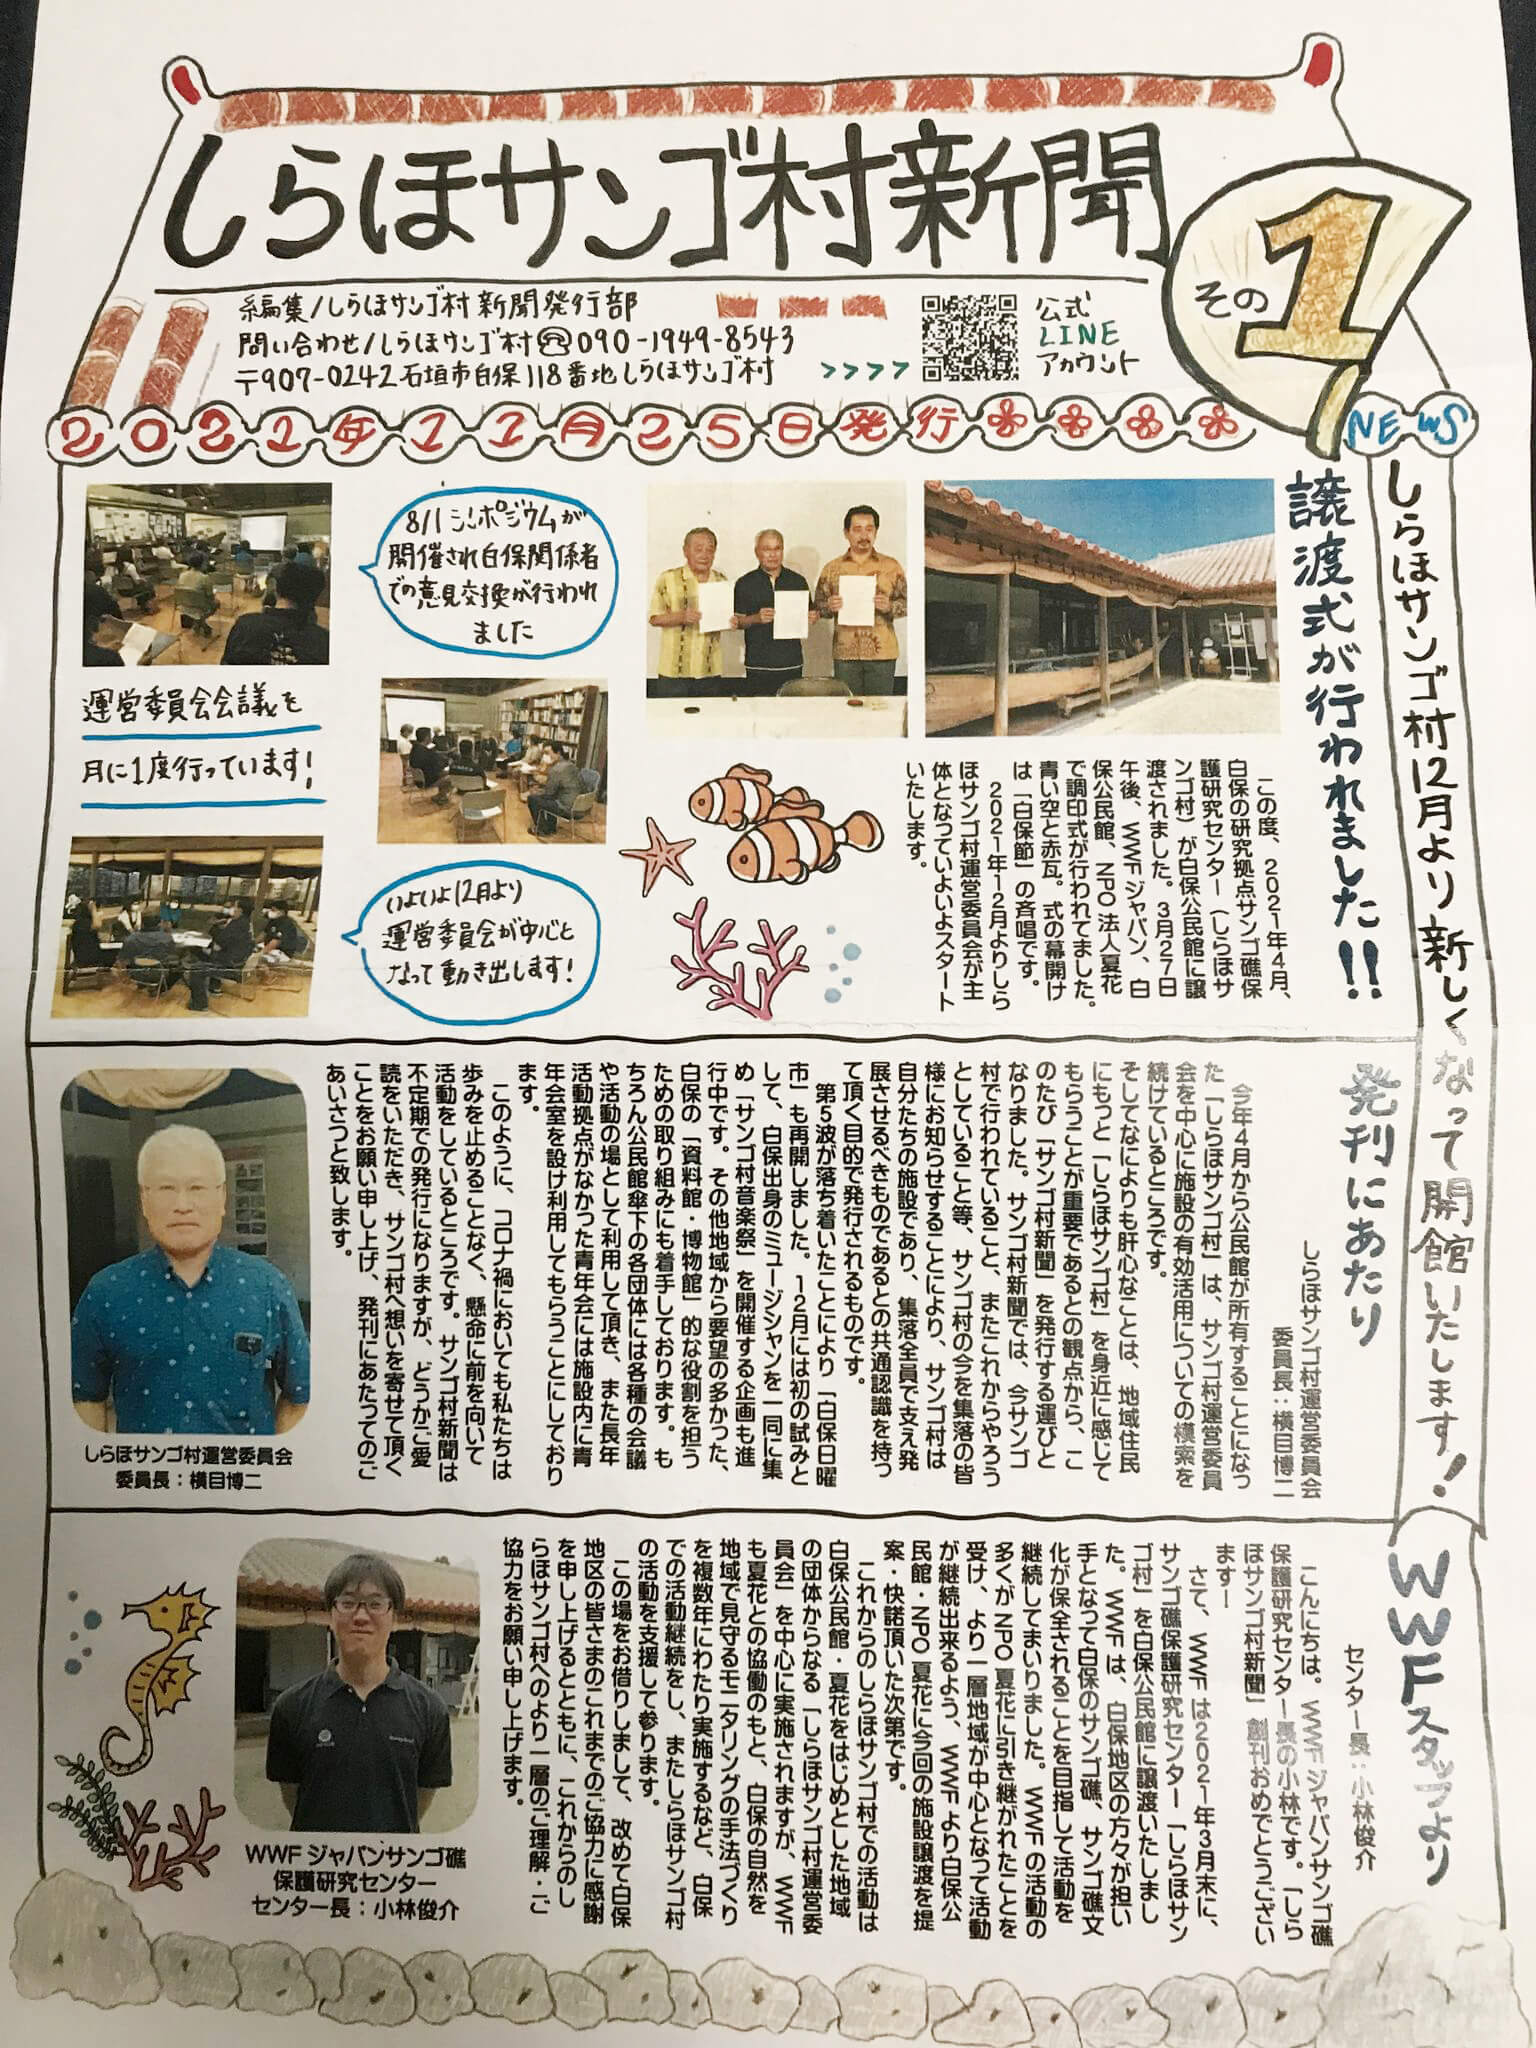 しらほサンゴ村新聞
その1
編集/しらほサンゴ村新聞発行部
問い合わせ/しらほサンゴ村☎090-1949-8543
〒907-0242石垣市白保118番地しらほサンゴ村
>>>>
公式
LINE
アカウント
2021年11月25日発行
NEWS
しらほサンゴ村12月より新しくなって開館いたします!
譲渡式が行われました!!
8/1シンポジウムが
開催され白保関係者
での意見交換が行われ
ました
運営委員会会議を
月に1度行っています!
いよいよ12月より
運営委員会が中心と
なって動き出します!
この度、2021年4月、
白保の研究拠点サンゴ礁保
護研究センター(しらほサ
ンゴ村)が白保公民館に譲
渡されました。3月27日
午後、WWFジャパン、白
保公民館、NPO法人夏花
で調印式が行われてました。
青い空と赤瓦。式の幕開け
は「白保節」の斉唱です。
2021年12月よりしら
ほサンゴ村運営委員会が主
体となっていよいよスタート
いたします。
発刊にあたり
しらほサンゴ村運営委員会
委員長:横目博二
今年4月から公民館が所有することになっ
た「しらほサンゴ村」は、サンゴ村運営委員
会を中心に施設の有効活用についての模索を
続けているところです。
そしてなによりも肝心なことは、地域住民
にもっと「しらほサンゴ村」を身近に感じて
もらうことが重要であるとの観点から、こ
のたび「サンゴ村新聞」を発行する運びと
なりました。サンゴ村新聞では、今サンゴ
村で行われていること、またこれからやろう
としていること等、サンゴ村の今を集落の皆
様にお知らせすることにより、サンゴ村は
自分たちの施設であり、集落全員で支え発
展させるべきものであるとの共通認識を持っ
て頂く目的で発行されるものです。
第5波が落ち着いたことにより「白保日曜
市」も再開しました。12月には初の試みと
して、白保出身のミュージシャンを一同に集
め「サンゴ村音楽祭」を開催する企画も進
行中です。その他地域から要望の多かった、
白保の「資料館・博物館」的な役割を担う
ための取り組みにも着手しております。も
ちろん公民館傘下の各団体には各種の会議
や活動の場として利用して頂き、また長年
活動拠点がなかった青年会には施設内に青
年会室を設け利用してもらうことにしており
ます。
このように、コロナ禍においても私たちは
歩みを止めることなく、懸命に前を向いて
活動をしているところです。サンゴ村新聞は
不定期での発行になりますが、どうかご愛
読をいただき、サンゴ村へ想いを寄せて頂く
ことをお願い申し上げ、発刊にあたってのご
あいさつと致します。
しらほサンゴ村運営委員会
委員長:横目博二
WWFスタッフより
センター長:小林俊介
こんにちは。WWFジャパンサンゴ礁
保護研究センター長の小林です。「しら
ほサンゴ村新聞」創刊おめでとうござい
ますー
さて、WWFは2021年3月末に、
サンゴ礁保護研究センター「しらほサン
ゴ村」を白保公民館に譲渡いたしまし
た。WWFは、白保地区の方々が担い
手となって白保のサンゴ礁、サンゴ礁文
化が保全されることを目指して活動を
継続してまいりました。WWFの活動の
多くがNPO夏花に引き継がれたことを
受け、より一層地域が中心となって活動
が継続出来るよう、WWFより白保公
民館・NPO夏花に今回の施設譲渡を提
案・快諾頂いた次第です。
これからのしらほサンゴ村での活動は
白保公民館・夏花をはじめとした地域
の団体からなる「しらほサンゴ村運営委
員会」を中心に実施されますが、WWF
も夏花との協働のもと、白保の自然を
地域で見守るモニタリングの手法づくり
を複数年にわたり実施するなど、白保
での活動継続をし、またしらほサンゴ村
の活動を支援して参ります。
この場をお借りしまして、改めて白保
地区の皆さまのこれまでのご協力に感謝
を申し上げるとともに、これからのし
らほサンゴ村へのより一層のご理解・ご
協力をお願い申し上げます。
WWFジャパンサンゴ礁
保護研究センター
センター長:小林俊介